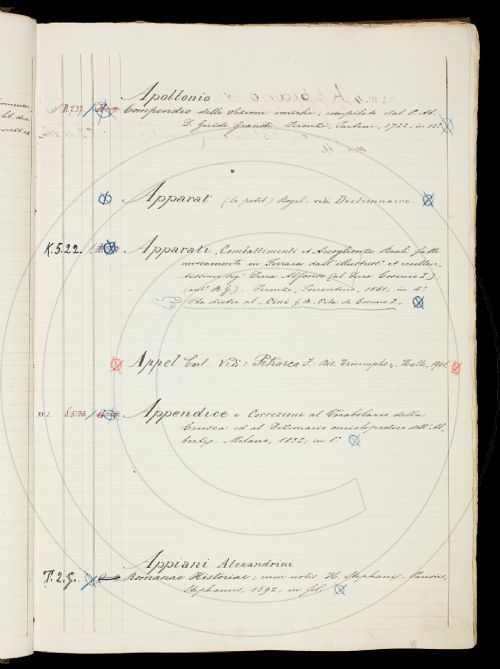 Apollonio
B.7.37. Compendio delle Sezioni coniche, compilato dal P. Ab.
D. Guido Grandi. Firenze, Tartini, 1722, in 12°
Apparat (le petit) Royal. vedi Dictionnaire.
K.5.22. Apparati, Combattimenti et Accoglienze Reali
nuovamente in Ferrara dall' Illustriss° et eccellen-
tissimo Sig. Duca Alfonso (al Duca Cosimo I.)
Firenze, Torrentino, 1561, in 4°
Sta dietro al Cini G.B. Vita di Cosimo I.
Appel Carl. Vedi: Petrarca F. Die Triumphe, Halle, 1901.
Appendice e Correzioni al Vocabolario della
Crusca ed al Dizionario enciclopedico dell' Al-
berti. Milano, 1832, in 8°
Appiani Alexandrini
T.2.G. Romanae Historiae; cum notis H. Stephani.
Stephanus, 1592, in fol.